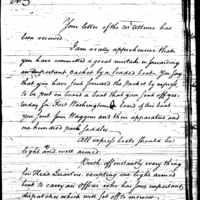 Your letter of the 30 Ultimo has
been received.
I am really apprehensive that
you have committed a great mistake in forwarding
an important packet by a loaded boat. You say
that you sent forward the packet by express
to be put on board a boat that you sent off yes-
terday for Fort Washington. On board of this boat
you sent four Waggons and their apparatus and
one hundred pack Saddles.
All express boats should be
light and well armed.
Send off instantly every thing
for Head Quarters, excepting one light armed
boat to carry an Officer who has some important
dispatches which will set off to morrow.